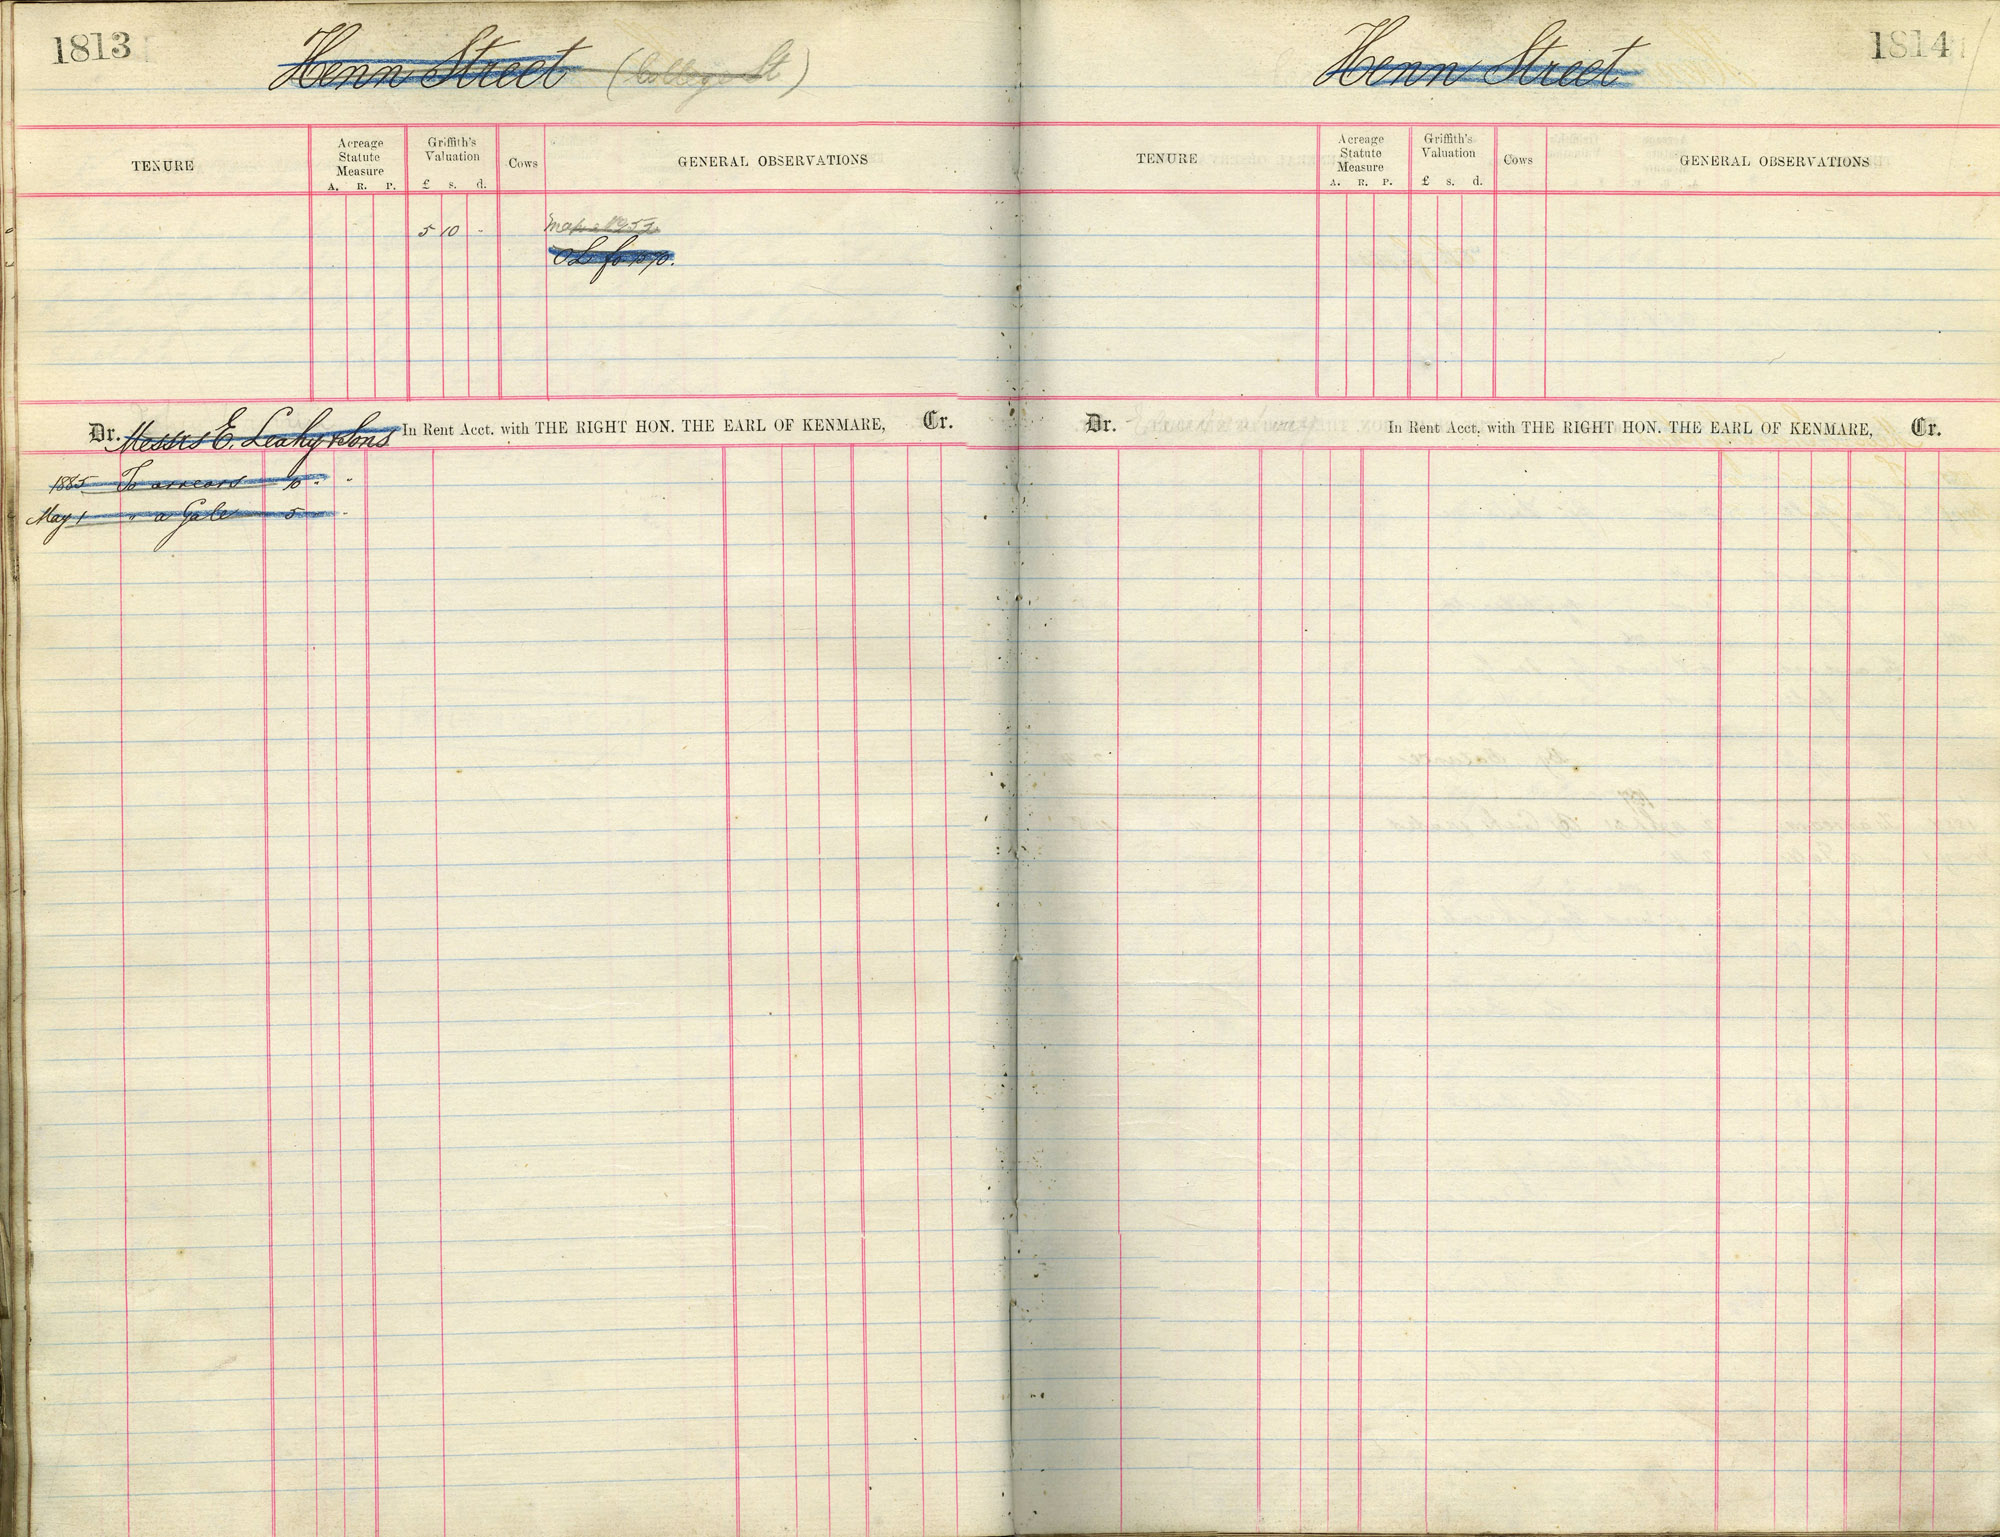 1813
Henn Street (College St)
TENURE
Acreage Statute Measure
A. R. P.
Griffith's Valuation
£ s. d.
Cows
GENERAL OBSERVATIONS
5 10 -
OL fo
Dr. Messrs E. Leahy & Sons In Rent Acct. with THE RIGHT HON. THE EARL OF KENMARE, Cr.
1885 To arrears 10 " "
May 1 " a Gale 5 " "
1814
Henn Street
TENURE
Acreage Statute Measure
A. R. P.
Griffith's Valuation
£ s. d.
Cows
GENERAL OBSERVATIONS
Dr. In Rent Acct. with THE RIGHT HON. THE EARL OF KENMARE, Cr.